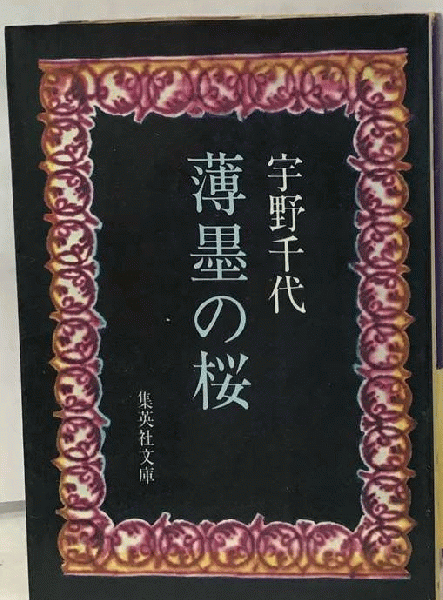 宇野千代
薄墨の桜
集英社文庫